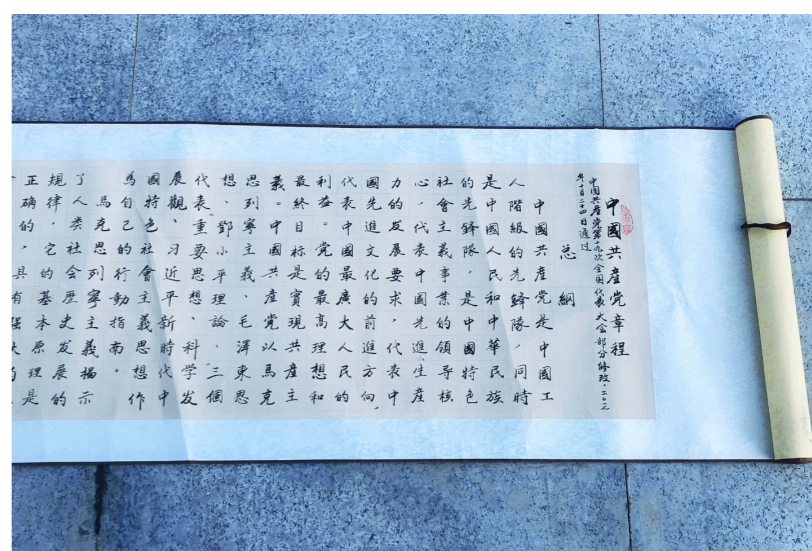 中國共產党章程
中國共產党第十九次全國代表大会部分修改,二〇一七
年十月二十四日通过
总綱
中國共產党是中國工
人階級的先鋒隊,同時
是中國人民和中華民族
的先鋒隊,是中國特色
社會主義事業的領导核
心,代表中國先進生產
力的发展要求,代表中
國先進文化的前進方向,
代表中國最廣大人民的
利益。党的最高理想和
最終目标是實現共產主
義。中國共產党以馬克
思列寧主義、毛澤東思
想、鄧小平理論、“三個
代表”重要思想、科学发
展觀、习近平新時代中
國特色社會主義思想作
為自己的行動指南。
馬克思列寧主義揭示
了人类社会歷史发展的
規律,它的基本原理是
正确的,具有强大